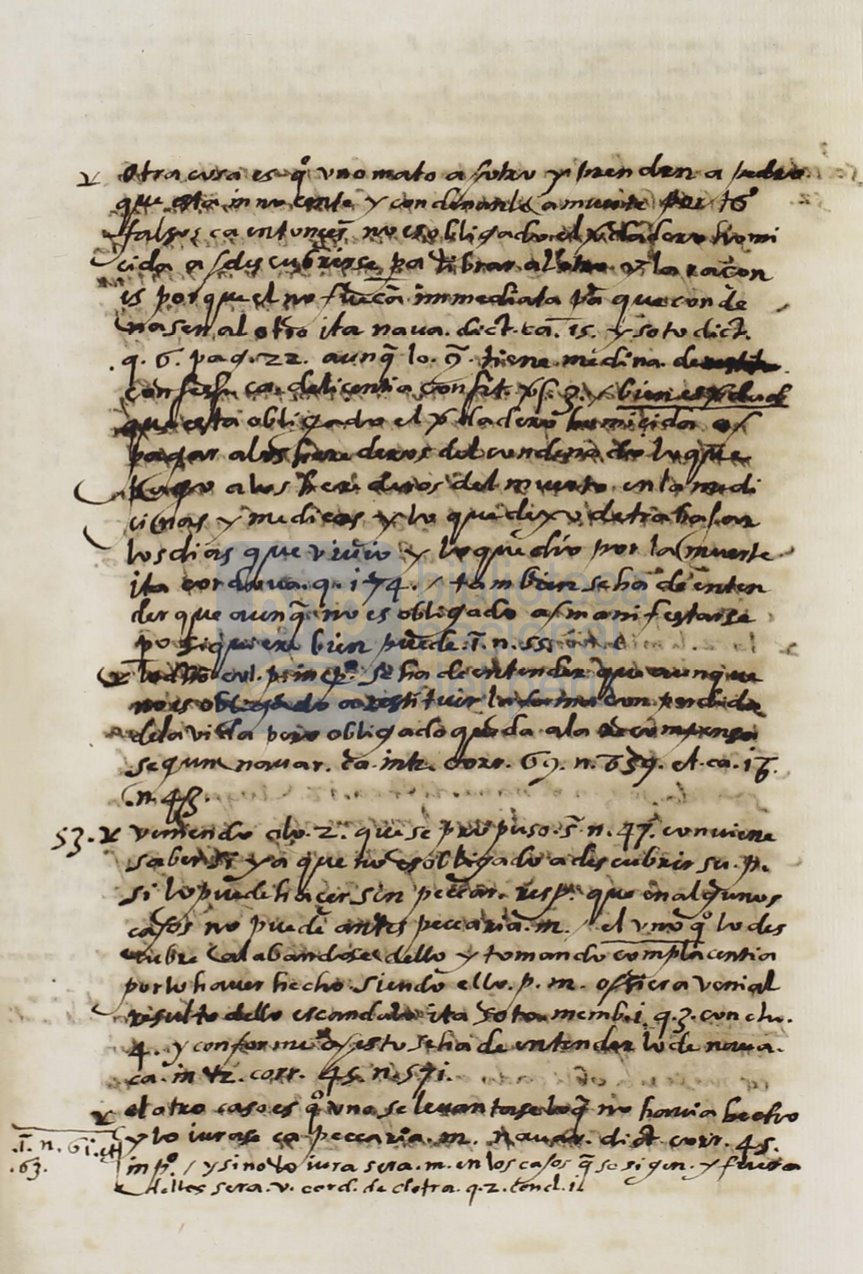 otra cosa es qº vno mato a otro y prenden a pedro
que esta innocente y condenanle a muerte por tºˢ
falsos ca entonces no es obligado el xdadero homi
cida a descubrirse pa librar al otro y la raçon
es porque el no fue cā immediata pā que conde
nasen al otro ita naua. dict. ca. 15. y soto dict.
q. 6. pag. 22. aunq̄ lo. 9. tiene medina de
confess. ca. de licentia confit.
que esta obligado el xdadero humicida
pagar a los herederos del condenado lo que
a los herederos del muerto en la medi
cinas y medicos y lo que dexo de trabajar
los dias que viuio y lo que dio por la muerte
ita cordoua. q. 174. / tambien se ha de enten
der que aunq̄ no es obligado a manifestarse
po si quiere bien puede. s̄. n. 55.
se ha de entender que aunque
no es obligado a restituir la fama con perdida
de la vida pero obligado queda a la recompensa
segun nauar. ca. int. corr. 69. n. 639. et. ca. 18.
n. 48.
53. viniendo a lo. 2. que se propuso. s̄. n. 47. conuiene
saber si ya que no es obligado a descubrir su. p.
si lo puede hacer sin peccar. resp. que en algunos
casos no puede antes peccaria. m. / el vno qº lo des
cubre alabandose dello y tomando complacentia
por lo hauer hecho siendo ello. p. m. o si era venial
resulto dello escandalo ita soto. memb. 1. q. 3. conclu.
4. y conforme a esto se ha de entender lo de naua.
ca. in vt. corr. 45. n. 571.
el otro caso es qº vno se leuantase lo q̄ no hauia hecho
s̄. n. 61. et y lo iurase ca peccaria. m. nauar. dict. corr. 45.
.63. in pº. / y si no lo iura sera. m. en los casos q̄ se siguen. y fuera
dellos sera. v. cord. de detra. q. 2. concl. 1.